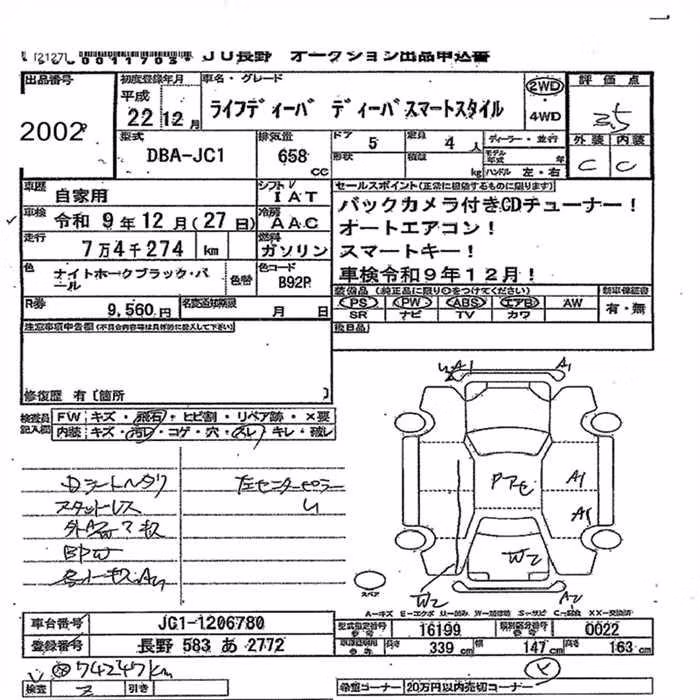 0011703 JU長野 オークション出品申込書
出品番号 初度登録年月 車名・グレード 2WD 評価点
平成 22 12月 ライフディーバ ディーバスマートスタイル 4WD 3.5
2002 型式 排気量 ドア 5 定員 4人 ディーラー・並行 外装 内装
DBA-JC1 658 CC 形状 積載 kg モデル年式 年 ハンドル 左・右 C C
車歴 自家用 シフト IAT セールスポイント(正常に機能するものに限ります)
車検 令和 9年 12月(27日) 冷房 AAC バックカメラ付きCDチューナー!
走行 7万4千274 km 燃料 ガソリン オートエアコン!
色 ナイトホークブラック・パール 色替 色コード B92P スマートキー!
車検令和9年12月!
R券 9,560円 名変通知期限 月 日 装備品(純正品に限り○をつけてください) 新車保証書
PS PW ABS エアB AW 有・無
SR ナビ TV カワ
注意事項申告欄(不具合内容等は具体的に記入して下さい) 後日品
修復歴 有〔箇所 〕
検査員記入欄 FW キズ・飛石・ヒビ割・リペア跡・×要
内装 キズ・汚レ・コゲ・穴・スレ・キレ・破レ
A1 A1
Dシートヘタリ 左センターピラー
スタットレス A1
BPW A1
W2
W2 A2
スペア
A=キズ E=エクボ U=凹み W=補修跡 S=サビ C=腐食 XX=交換済
車台番号 JG1-1206780 型式指定番号 16199 類別区分番号 0022
登録番号 長野 583 あ 2772 長さ 339 cm 幅 147 cm 高さ 163 cm
74247km
検査 引き 希望コーナー 20万円以内売切コーナー